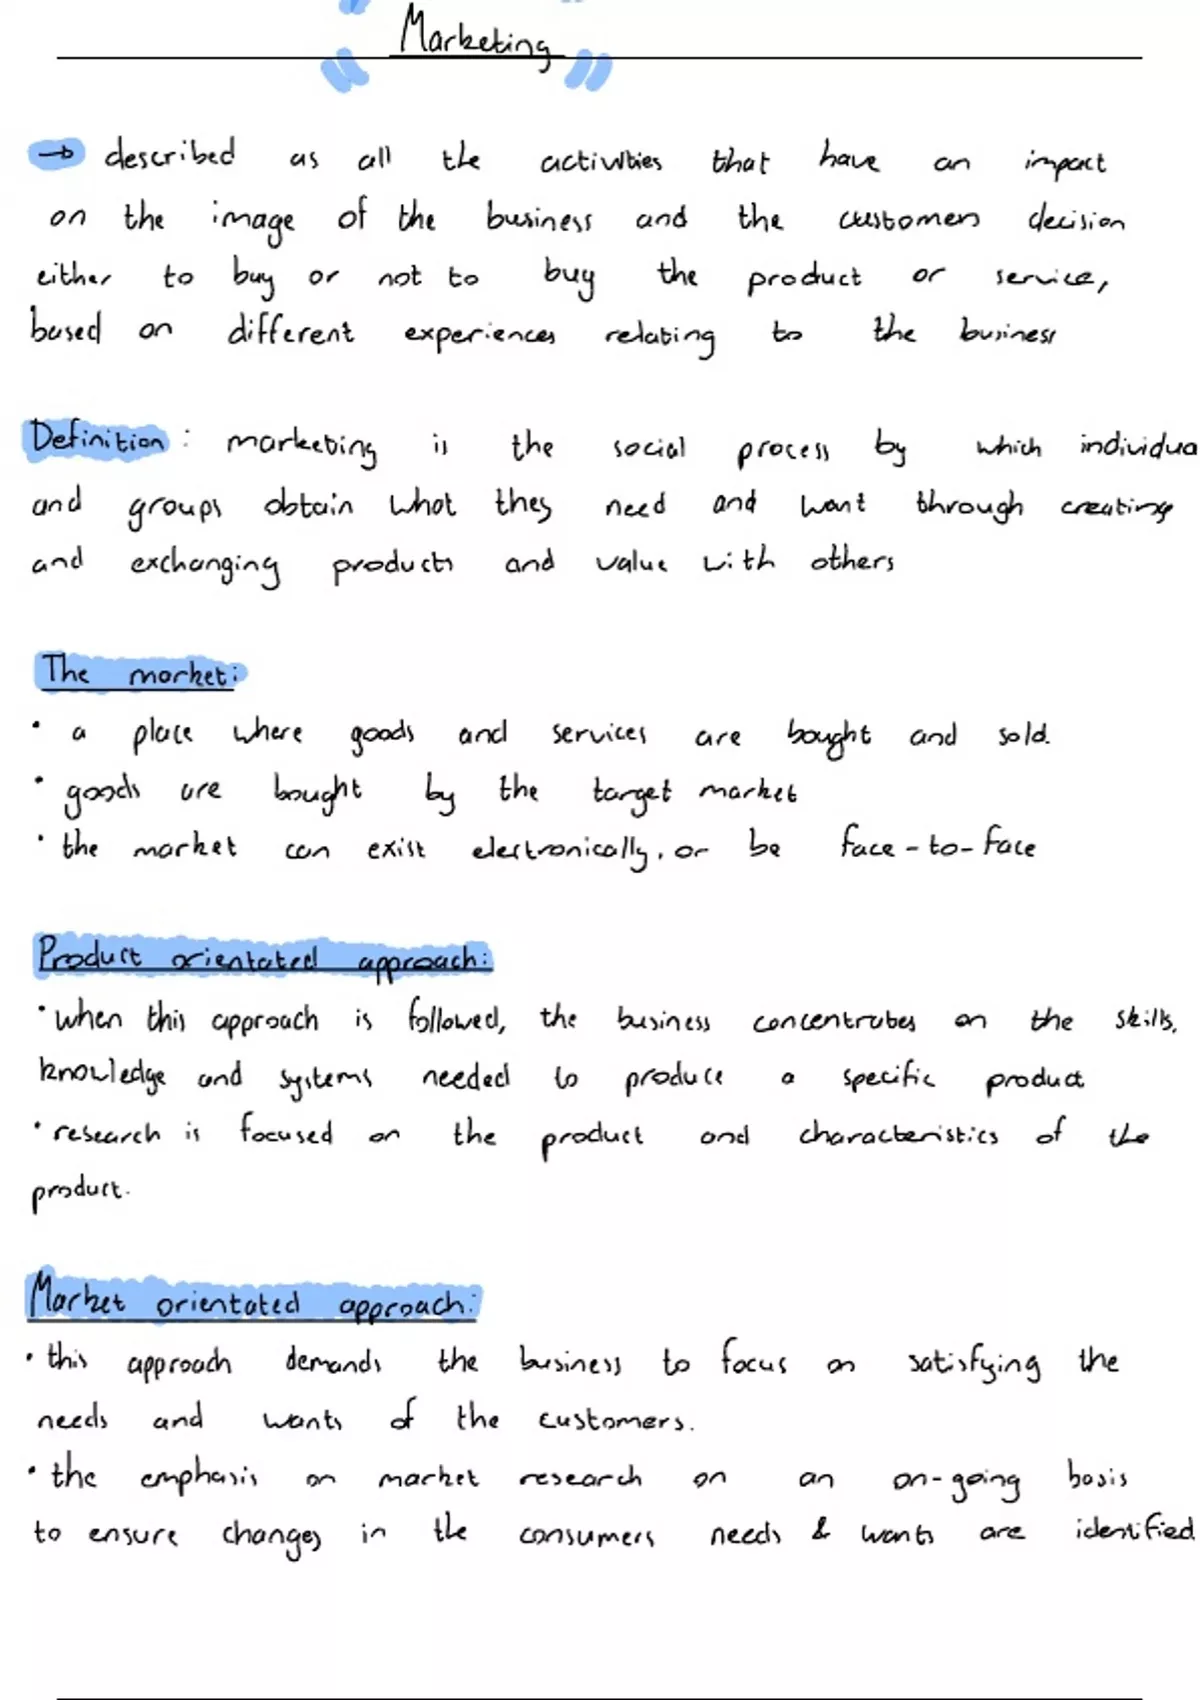 Marketing
→ described as all the activities that have an impact
on the image of the business and the customers decision
either to buy or not to buy the product or service,
based on different experiences relating to the business
Definition: marketing is the social process by which individua
and groups obtain what they need and want through creating
and exchanging products and value with others
The market:
• a place where goods and services are bought and sold.
• goods are bought by the target market
• the market can exist electronically, or be face-to-face
Product orientated approach:
• when this approach is followed, the business concentrates on the skills,
knowledge and systems needed to produce a specific product
• research is focused on the product and characteristics of the
product.
Market orientated approach:
• this approach demands the business to focus on satisfying the
needs and wants of the customers.
• the emphasis on market research on an on-going basis
to ensure changes in the consumers needs & wants are identified